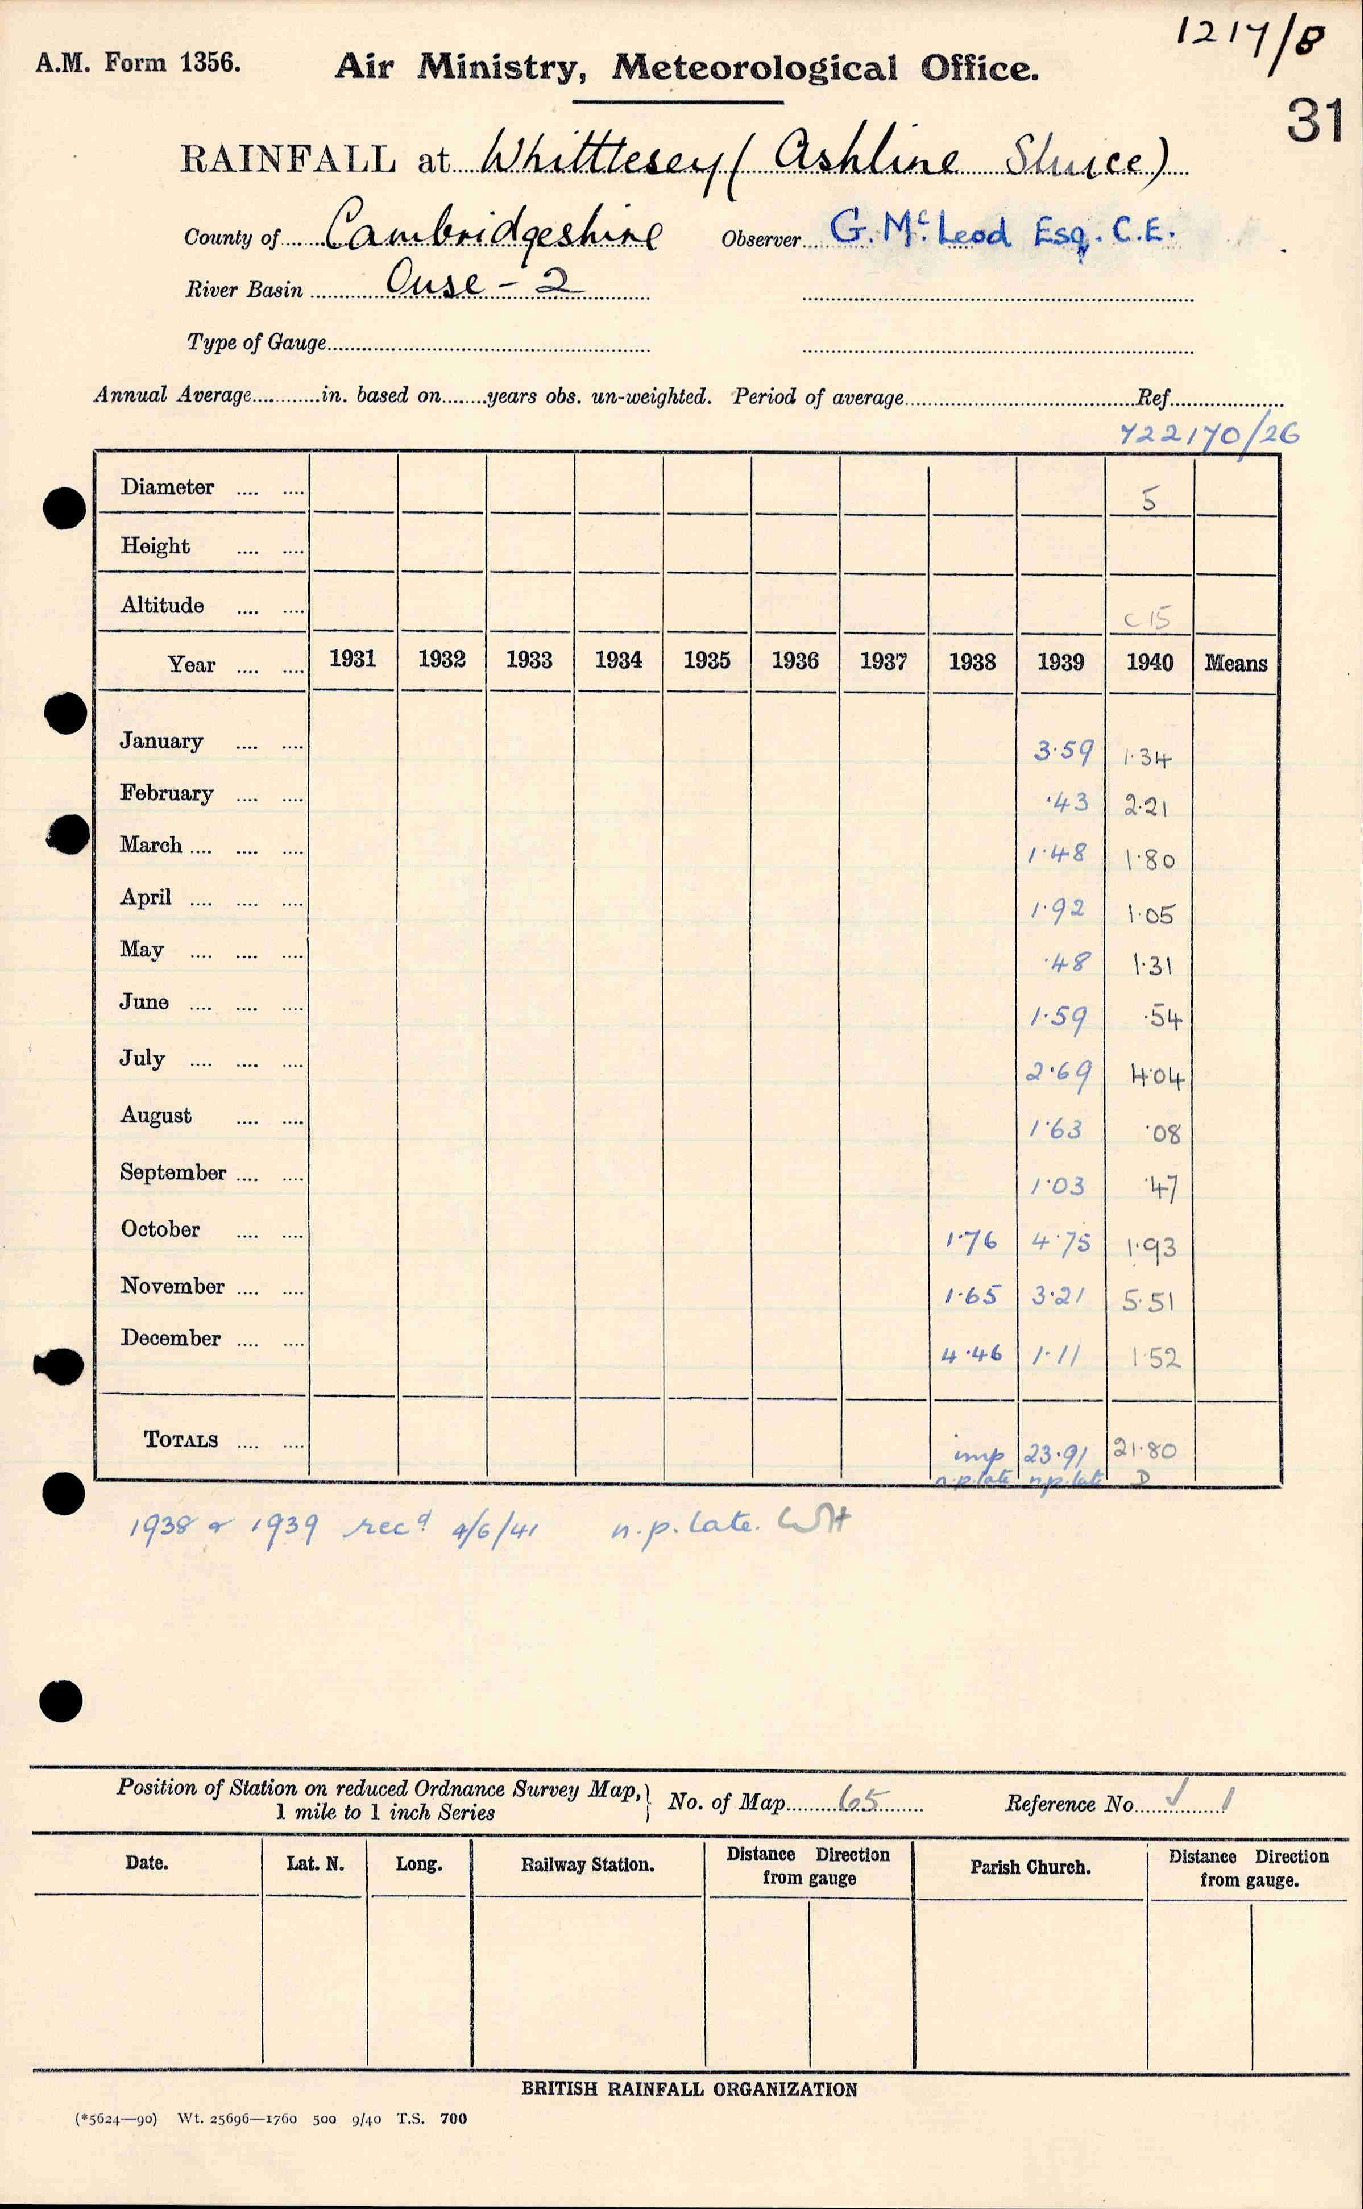 1217/8
A.M. Form 1356. Air Ministry, Meteorological Office.
31
RAINFALL at Whittlesey ( Ashline Sluice)
County of Cambridgeshire Observer G. McLeod Esq. C.E.
River Basin Ouse - 2
Type of Gauge
Annual Average............in. based on........years obs. un-weighted. Period of average..........Ref..........
722170/26
Diameter .... .... 5
Height .... ....
Altitude .... .... c 15
Year .... .... 1931 1932 1933 1934 1935 1936 1937 1938 1939 1940 Means
January .... .... 3.59 1.34
February .... .... .43 2.21
March .... .... .... 1.48 1.80
April .... .... .... 1.92 1.05
May .... .... .... .48 1.31
June .... .... .... 1.59 .54
July .... .... .... 2.69 4.04
August .... .... 1.63 .08
September .... .... 1.03 .47
October .... .... 1.76 4.75 1.93
November .... .... 1.65 3.21 5.51
December .... .... 4.46 1.11 1.52
TOTALS .... .... imp 23.91 21.80
n.p.late n.p.late D
1938 & 1939 recd 4/6/41 n.p. late. WH
Position of Station on reduced Ordnance Survey Map,} No. of Map 65 Reference No. J 1
1 mile to 1 inch Series
Date. Lat. N. Long. Railway Station. Distance Direction from gauge Parish Church. Distance Direction from gauge.
BRITISH RAINFALL ORGANIZATION
(*5624—90) Wt. 25696—1760 500 9/40 T.S. 700